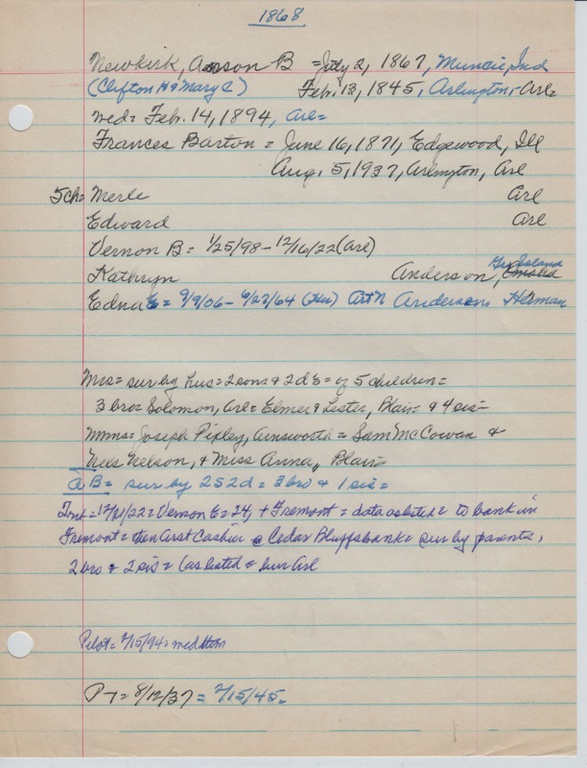 1868
Newkirk, Anson B = July 2, 1867, Muncie, Ind
(Clifton H & Mary C) Feb. 13, 1845, Arlington, Arl=
med= Feb. 14, 1894, Arl=
Frances Barton = June 16, 1871, Edgewood, Ill
Aug. 5, 1937, Arlington, Arl
5ch= Merle Arl
Edward Arl
Vernon B = 1/25/98 - 12/16/22 (Arl)
Kathryn Anderson, Gr Island Omaha
Edna E = 9/9/06 - 6/22/64 (Her) Art N Anderson Herman
Mrs= sur by hus= 2 sons & 2 d's = of 5 children=
3 bro= Solomon, Arl= Elmer & Lester, Blair= & 4 sis=
Mmes= Joseph Pixley, Ainsworth = Sam McCowan &
Nels Nelson, & Miss Anna, Blair=
A B= sur by 2S 2d= 3 bro & 1 sis=
12/21/22= Vernon = 24, + Fremont = data as listed = to bank in
Fremont = then asst Cashier @ Cedar Bluffs bank= sur by parents,
2 bro & 2 sis= (as listed = bur Arl
Pilot= 2/15/94= med item
8/12/37 = 2/15/45=